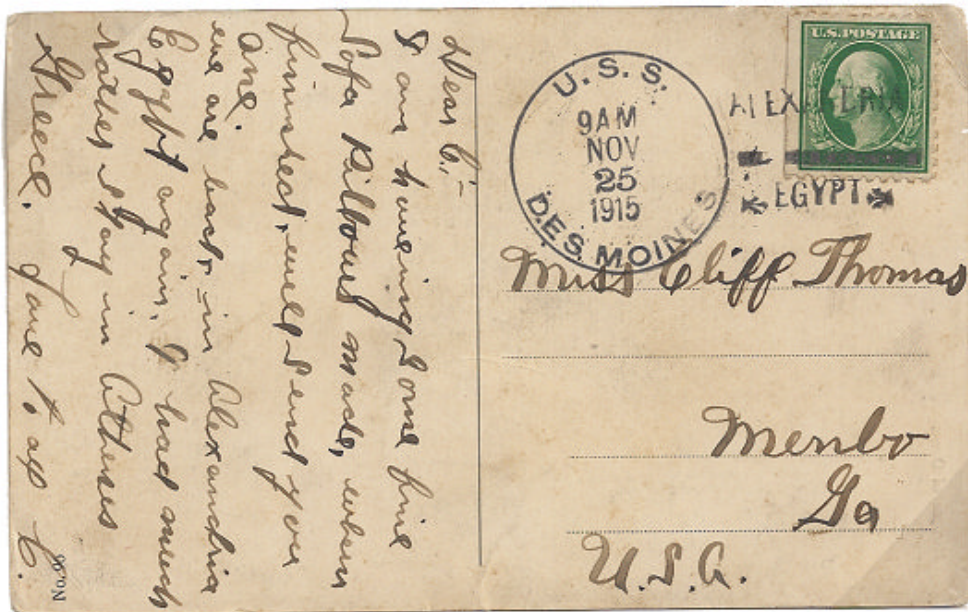 Dear C,-
I am haveing some fine
Sofa Pillows made, when
finished, will send you
one.
we are back in Alexandria
Egypt again, I had much
rather stay in Athens
Greece. love to all C.
No. 9
U.S.S. DES MOINES
9AM
NOV
25
1915
U.S. POSTAGE
ALEXANDRIA
EGYPT
Miss Cliff Thomas
Menlo
Ga
U.S.A.